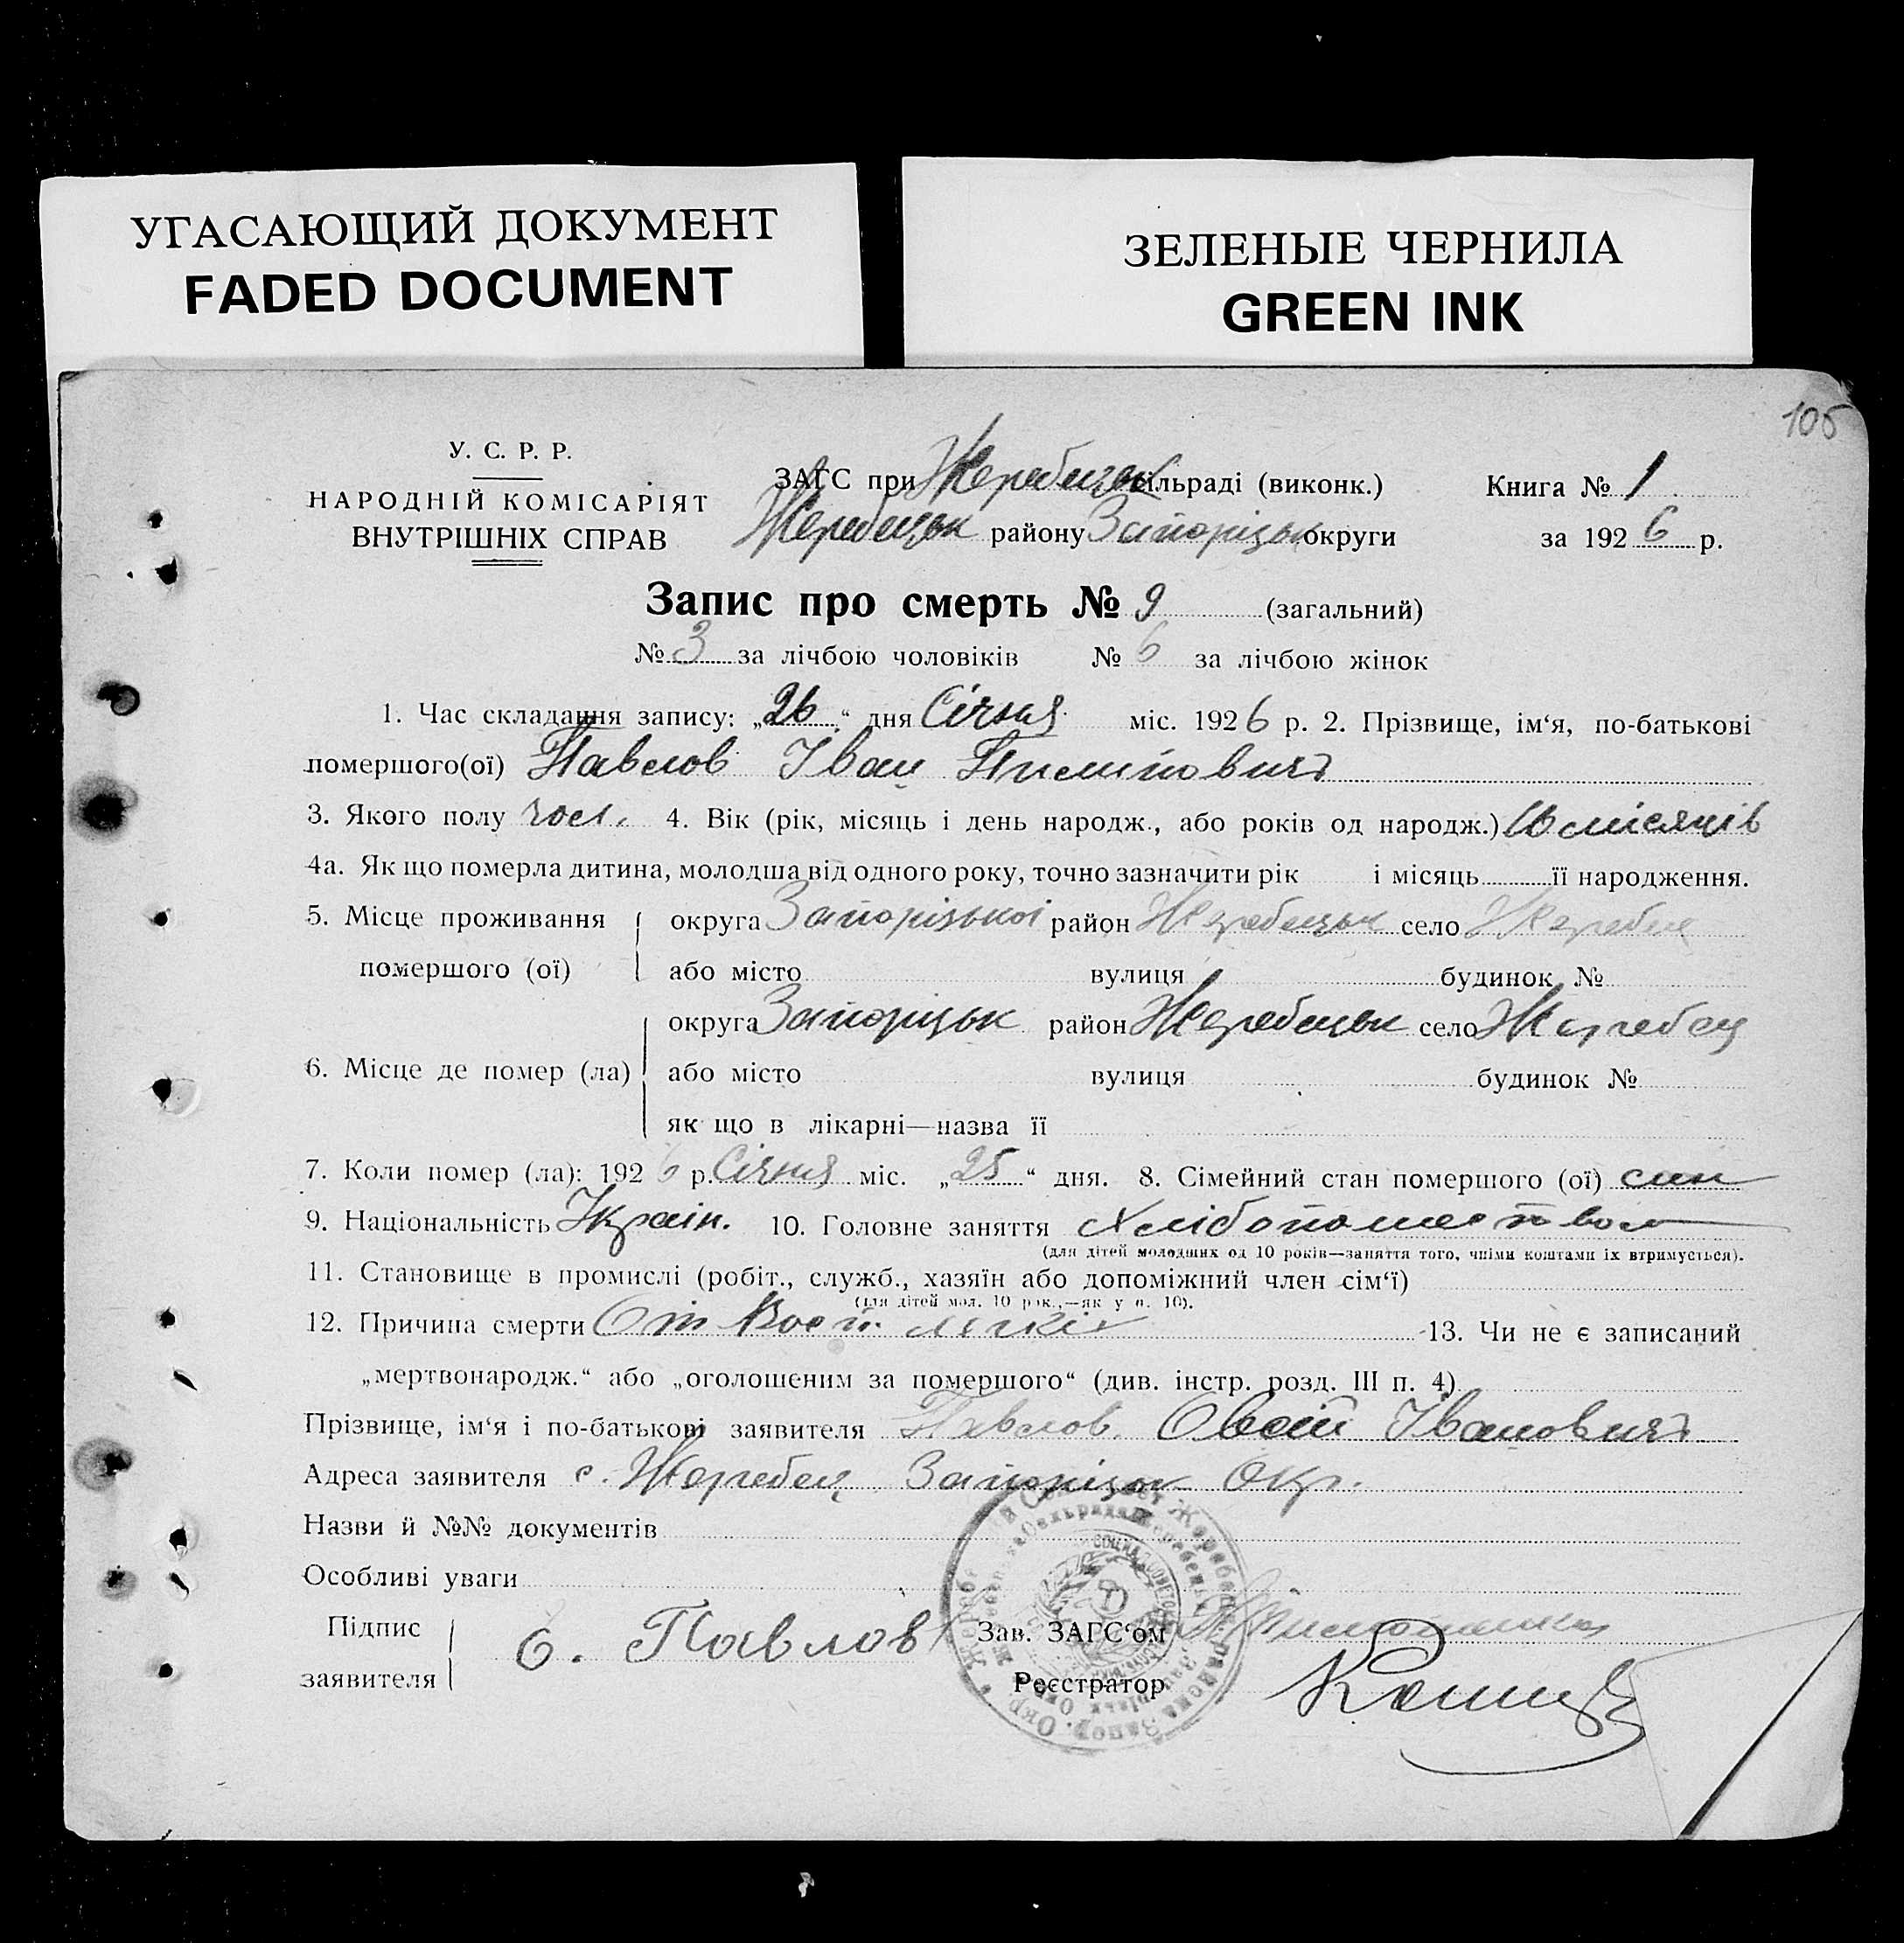 УГАСАЮЩИЙ ДОКУМЕНТ
FADED DOCUMENT
ЗЕЛЕНЫЕ ЧЕРНИЛА
GREEN INK
105
У. С. Р. Р.
НАРОДНІЙ КОМІСАРІЯТ
ВНУТРІШНІХ СПРАВ
ЗАГС при Жеребецьк сільраді (виконк.)
Жеребецьк району Запоріцьк округи
Книга № 1
за 1926 р.
Запис про смерть № 9 (загальний)
№ 3 за лічбою чоловіків № 6 за лічбою жінок
1. Час складання запису: „26“ дня Січня міс. 1926 р. 2. Прізвище, ім‘я, по-батькові
помершого(ої) Павлов Іван Пилипович
3. Якого полу чол. 4. Вік (рік, місяць і день народж., або років од народж.) місяців
4а. Як що померла дитина, молодша від одного року, точно зазначити рік і місяць її народження.
5. Місце проживання округа Запорізької район Жеребецьк село Жеребец
помершого (ої) або місто вулиця будинок №
округа Запоріцьк район Жеребецьк село Жеребец
6. Місце де помер (ла) або місто вулиця будинок №
як що в лікарні—назва її
7. Коли помер (ла): 1926 р. Січня міс. „25“ дня. 8. Сімейний стан помершого (ої) син
9. Національність Україн. 10. Головне заняття
(для дітей молодших од 10 років—заняття того, чиїми коштами їх втримується).
11. Становище в промислі (робіт., служб., хазяїн або допоміжний член сім‘ї)
(для дітей мол. 10 рок.,—як у п. 10).
12. Причина смерти От Восп. легкіх 13. Чи не є записаний
„мертвонародж.“ або „оголошеним за помершого“ (див. інстр. розд. III п. 4)
Прізвище, ім‘я і по-батькові заявителя Павлов Іванович
Адреса заявителя с. Жеребец Запоріцьк Окр.
Назви й №№ документів
Особливі уваги
Підпис
заявителя
Павлов
Зав. ЗАГС‘ом
Реєстратор